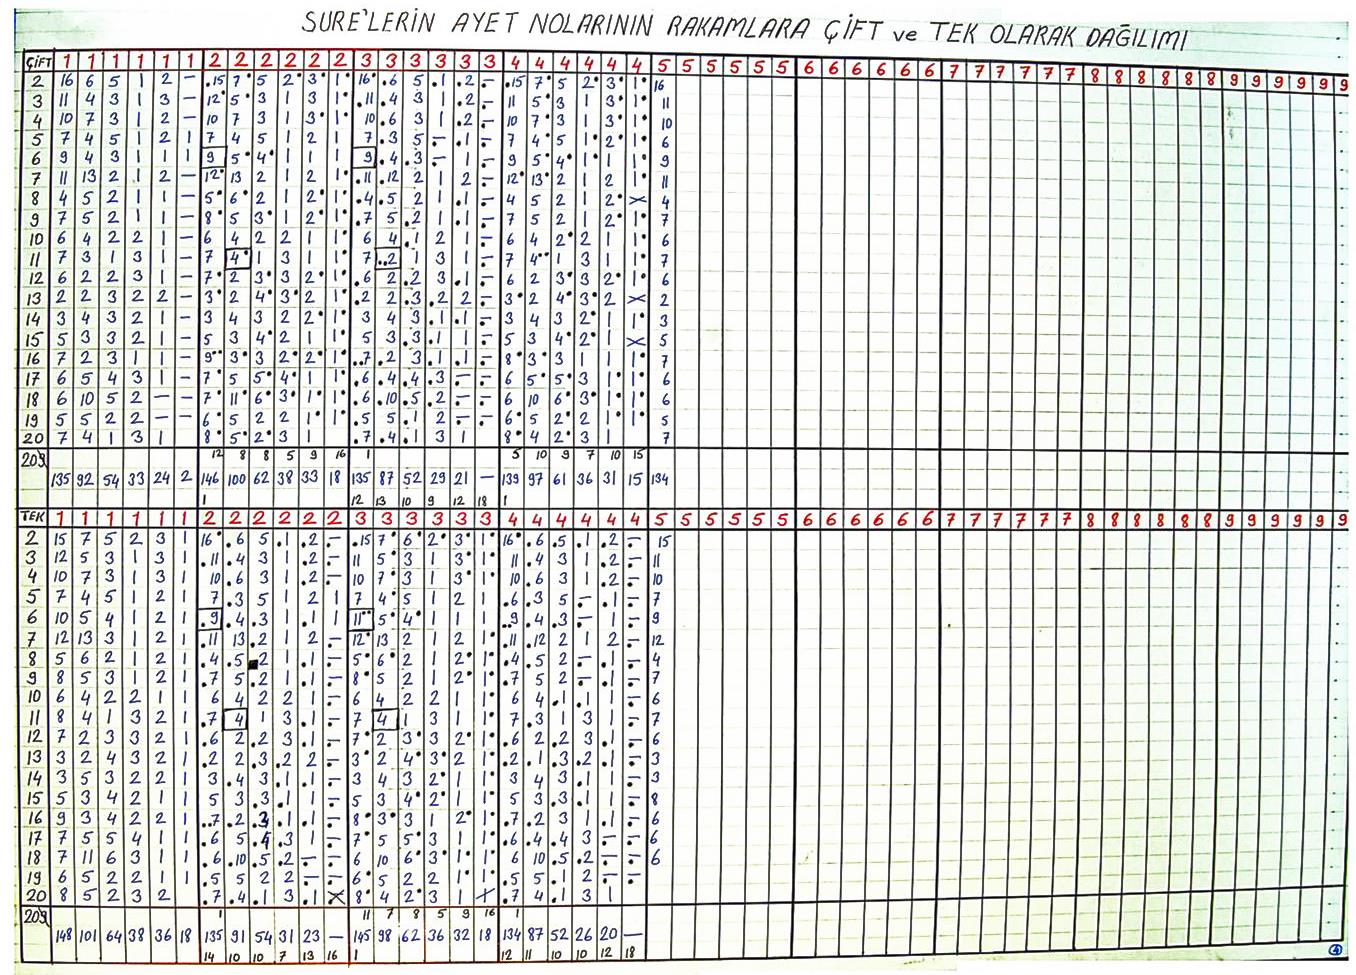 SURE'LERİN AYET NOLARININ RAKAMLARA ÇİFT ve TEK OLARAK DAĞILIMI
ÇİFT 1 1 1 1 1 1 2 2 2 2 2 2 3 3 3 3 3 3 4 4 4 4 4 4 5 5 5 5 5 5 6 6 6 6 6 6 7 7 7 7 7 7 8 8 8 8 8 8 9 9 9 9 9 9
2 16 6 5 1 2 – .15 7• 5 2• 3• 1• 16• .6 5 .1 .2 .– .15 7• 5 2• 3• 1• 16
3 11 4 3 1 3 – 12• 5• 3 1 3 1• .11 .4 3 1 .2 .– 11 5• 3 1 3• 1• 11
4 10 7 3 1 2 – 10 7 3 1 3• 1• 10 .6 3 1 .2 .– 10 7• 3 1 3• 1• 10
5 7 4 5 1 2 1 7 4 5 1 2 1 7 3 5 – .1 .– 7 4• 5 1• 2• 1• 6
6 9 4 3 1 1 1 9 5• 4• 1 1 1 9 .4 .3 – 1 .– 9 5• 4• 1• 1 1• 9
7 11 13 2 1 2 – 12• 13 2 1 2 1• .11 .12 2 1 2 .– 12• 13• 2 1 2 1• 11
8 4 5 2 1 1 – 5• 6• 2 1 2• 1• .4 .5 2 1 .1 .– 4 5 2 1 2• × 4
9 7 5 2 1 1 – 8• 5 3• 1 2• 1• .7 5 .2 1 .1 .– 7 5 2 1 2• 1• 7
10 6 4 2 2 1 – 6 4 2 2 1 1• 6 4 .1 2 1 .– 6 4 2• 2 1 1• 6
11 7 3 1 3 1 – 7 4• 1 3 1 1• 7 ..2 1 3 1 .– 7 4•• 1 3 1 1• 7
12 6 2 2 3 1 – 7• 2 3• 3 2• 1• .6 2 .2 3 .1 .– 6 2 3• 3 2• 1• 6
13 2 2 3 2 2 – 3• 2 4• 3• 2 1• .2 2 .3 .2 2 .– 3• 2 4• 3• 2 × 2
14 3 4 3 2 1 – 3 4 3 2 2• 1• 3 4 3 .1 .1 .– 3 4 3 2• 1 1• 3
15 5 3 3 2 1 – 5 3 4• 2 1 1• 5 3 .3 .1 1 .– 5 3 4• 2• 1 × 5
16 7 2 3 1 1 – 9•• 3• 3 2• 2• 1• ..7 .2 3 .1 .1 .– 8• 3• 3 1 1 1• 7
17 6 5 4 3 1 – 7• 5 5• 4• 1 1• .6 .4 .4 .3 – .– 6 5• 5• 3 1• 1• 6
18 6 10 5 2 – – 7• 11• 6• 3• 1• 1• .6 .10 .5 .2 .– .– 6 10 6• 3• 1• 1• 6
19 5 5 2 2 – – 6• 5 2 2 1• 1• .5 5 .1 2 .– .– 6• 5 2 2 1• 1• 5
20 7 4 1 3 1 8• 5• 2• 3 1 .7 .4 .1 3 1 8• 4 2• 3 1 7
209 12 8 8 5 9 16 1 5 10 9 7 10 15
135 92 54 33 24 2 146 100 62 38 33 18 135 87 52 29 21 – 139 97 61 36 31 15 134
1 12 13 10 9 12 18 1
TEK 1 1 1 1 1 1 2 2 2 2 2 2 3 3 3 3 3 3 4 4 4 4 4 4 5 5 5 5 5 5 6 6 6 6 6 6 7 7 7 7 7 7 8 8 8 8 8 8 9 9 9 9 9 9
2 15 7 5 2 3 1 16• .6 5 .1 .2 .– .15 7• 6• 2• 3• 1• 16• .6 .5 .1 .2 .– 15
3 12 5 3 1 3 1 .11 .4 3 1 .2 .– 11 5• 3 1 3• 1• 11 .4 3 1 .2 .– 11
4 10 7 3 1 3 1 10 .6 3 1 .2 .– 10 7• 3 1 3• 1• 10 .6 3 1 .2 .– 10
5 7 4 5 1 2 1 7 .3 5 1 2 1 7 4• 5 1 2 1 .6 .3 5 .– .1 .– 7
6 10 5 4 1 2 1 .9 .4 .3 1 .1 1 11•• 5• 4• 1 1 1 ..9 .4 .3 – 1 .– 9
7 12 13 3 1 2 1 .11 13 .2 1 2 .– 12• 13 2 1 2 1• .11 .12 2 1 2 .– 12
8 5 6 2 1 2 1 .4 .5 2 1 .1 .– 5• 6• 2 1 2• 1• .4 .5 2 .– .1 .– 4
9 8 5 3 1 2 1 .7 5 .2 1 .1 .– 8• 5 2 1 2• 1• .7 5 2 .– .1 .– 7
10 6 4 2 2 1 1 6 4 2 2 1 .– 6 4 2 2 1 1• 6 4 .1 .1 1 .– 6
11 8 4 1 3 2 1 .7 4 1 3 .1 .– 7 4 1 3 1 1• .7 .3 1 3 1 .– 7
12 7 2 3 3 2 1 .6 2 .2 3 .1 .– 7• 2 3• 3 2• 1• .6 2 .2 3 .1 .– 6
13 3 2 4 3 2 1 .2 2 .3 .2 2 .– 3• 2 4• 3• 2 1• .2 .1 .3 .2 .1 .– 3
14 3 5 3 2 2 1 3 .4 3 .1 .1 .– 3 4 3 2• 1 1• 3 4 3 .1 1 .– 3
15 5 3 4 2 1 1 5 3 .3 .1 1 .– 5 3 4• 2• 1 1• 5 3 .3 .1 1 .– 8
16 9 3 4 2 2 1 ..7 .2 .3 .1 .1 .– 8• 3• 3 1 2• 1• .7 .2 3 1 .1 .– 6
17 7 5 5 4 1 1 .6 5 .4 .3 1 .– 7• 5 5• 3 1 1• .6 .4 .4 3 .– .– 6
18 7 11 6 3 1 1 .6 .10 .5 .2 .– .– 6 10 6• 3• 1• 1• 6 10 .5 .2 .– .– 6
19 6 5 2 2 1 1 .5 5 2 2 .– .– 6• 5 2 2 1• 1• .5 5 .1 2 .– .–
20 8 5 2 3 2 .7 .4 .1 3 .1 × 8• 4 2• 3 1 × .7 4 .1 3 1
209 1 11 7 8 5 9 16 1
148 101 64 38 36 18 135 91 54 31 23 – 145 98 62 36 32 18 134 87 52 26 20 –
14 10 10 7 13 16 1 12 11 10 10 12 18
4